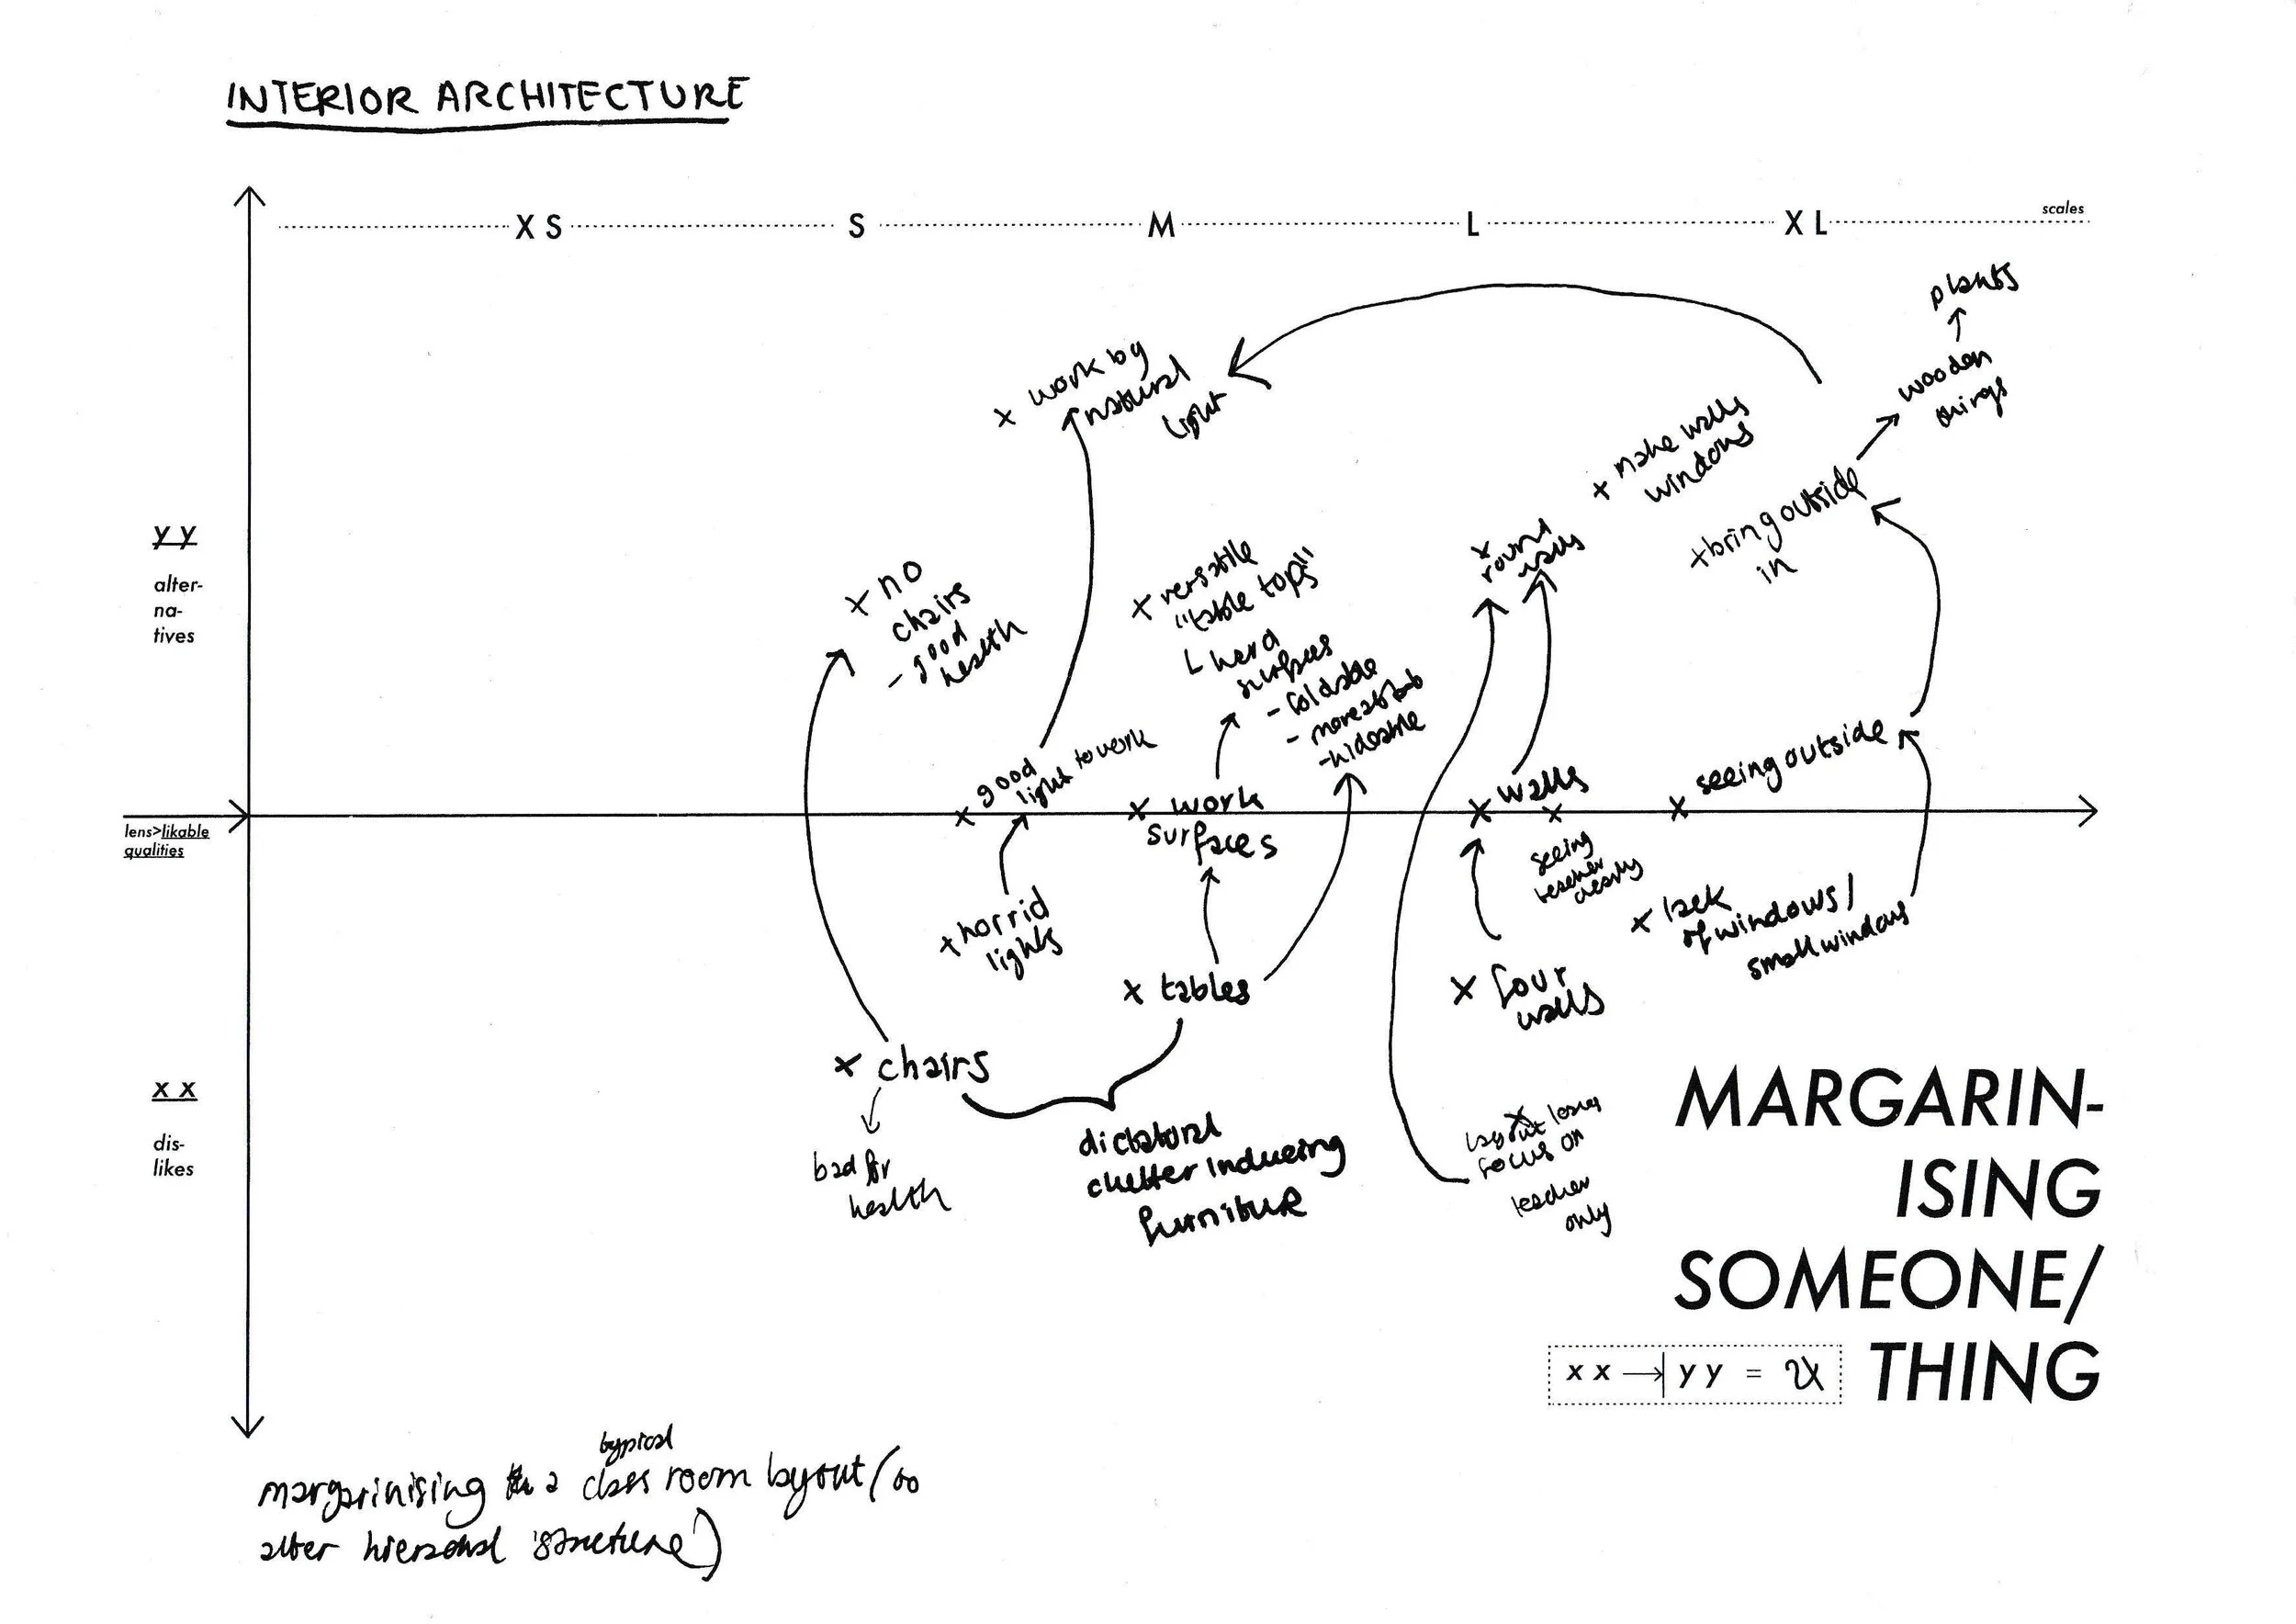 INTERIOR ARCHITECTURE
XS
S
M
L
XL
scales
plants
wooden
things
x work by
natural
light
x make walls
windows
yy
alter-
na-
tives
x no
chairs
- good
health
x versatile
"table tops"
hard
surfaces
- foldable
- hideable
x
round
walls
+ bring outside
in
x good
light to work
x work
surfaces
x walls
x
seeing
teacher
clearly
x seeing outside
lens>likable
qualities
+ horrid
lights
x tables
x four
walls
x lack
of windows/
small windows
x chairs
bad for
health
dictatorial
clutter inducing
furniture
x
layout
focus on
teacher
only
xx
dis-
likes
MARGARIN-
ISING
SOMEONE/
THING
xx → yy =
typical
margarinising a class room layout (to
alter hieracal structure)